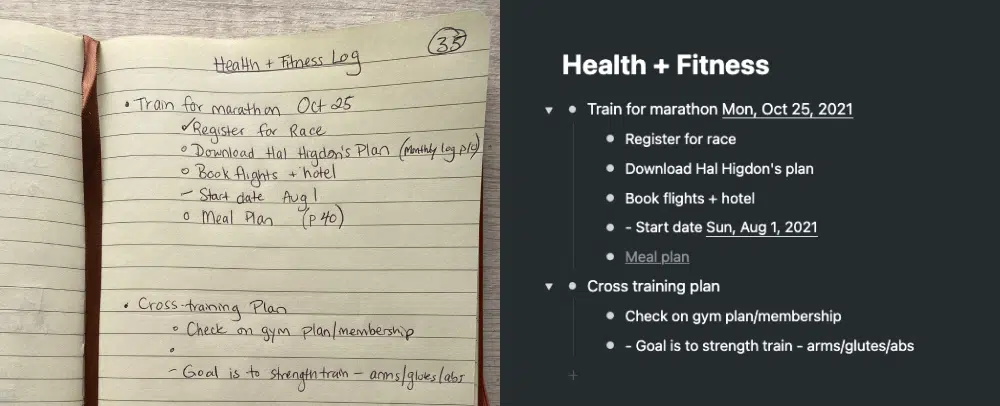 35
Health + Fitness Log
• Train for marathon Oct 25
✓Register for Race
○ Download Hal Higdon's Plan (monthly log p14)
○ Book flights + hotel
– Start date Aug 1
○ Meal Plan (p 40)
• Cross-training Plan
○ Check on gym plan/membership
○
– Goal is to strength train – arms/glutes/abs
Health + Fitness
Train for marathon Mon, Oct 25, 2021
Register for race
Download Hal Higdon's plan
Book flights + hotel
- Start date Sun, Aug 1, 2021
Meal plan
Cross training plan
Check on gym plan/membership
- Goal is to strength train - arms/glutes/abs